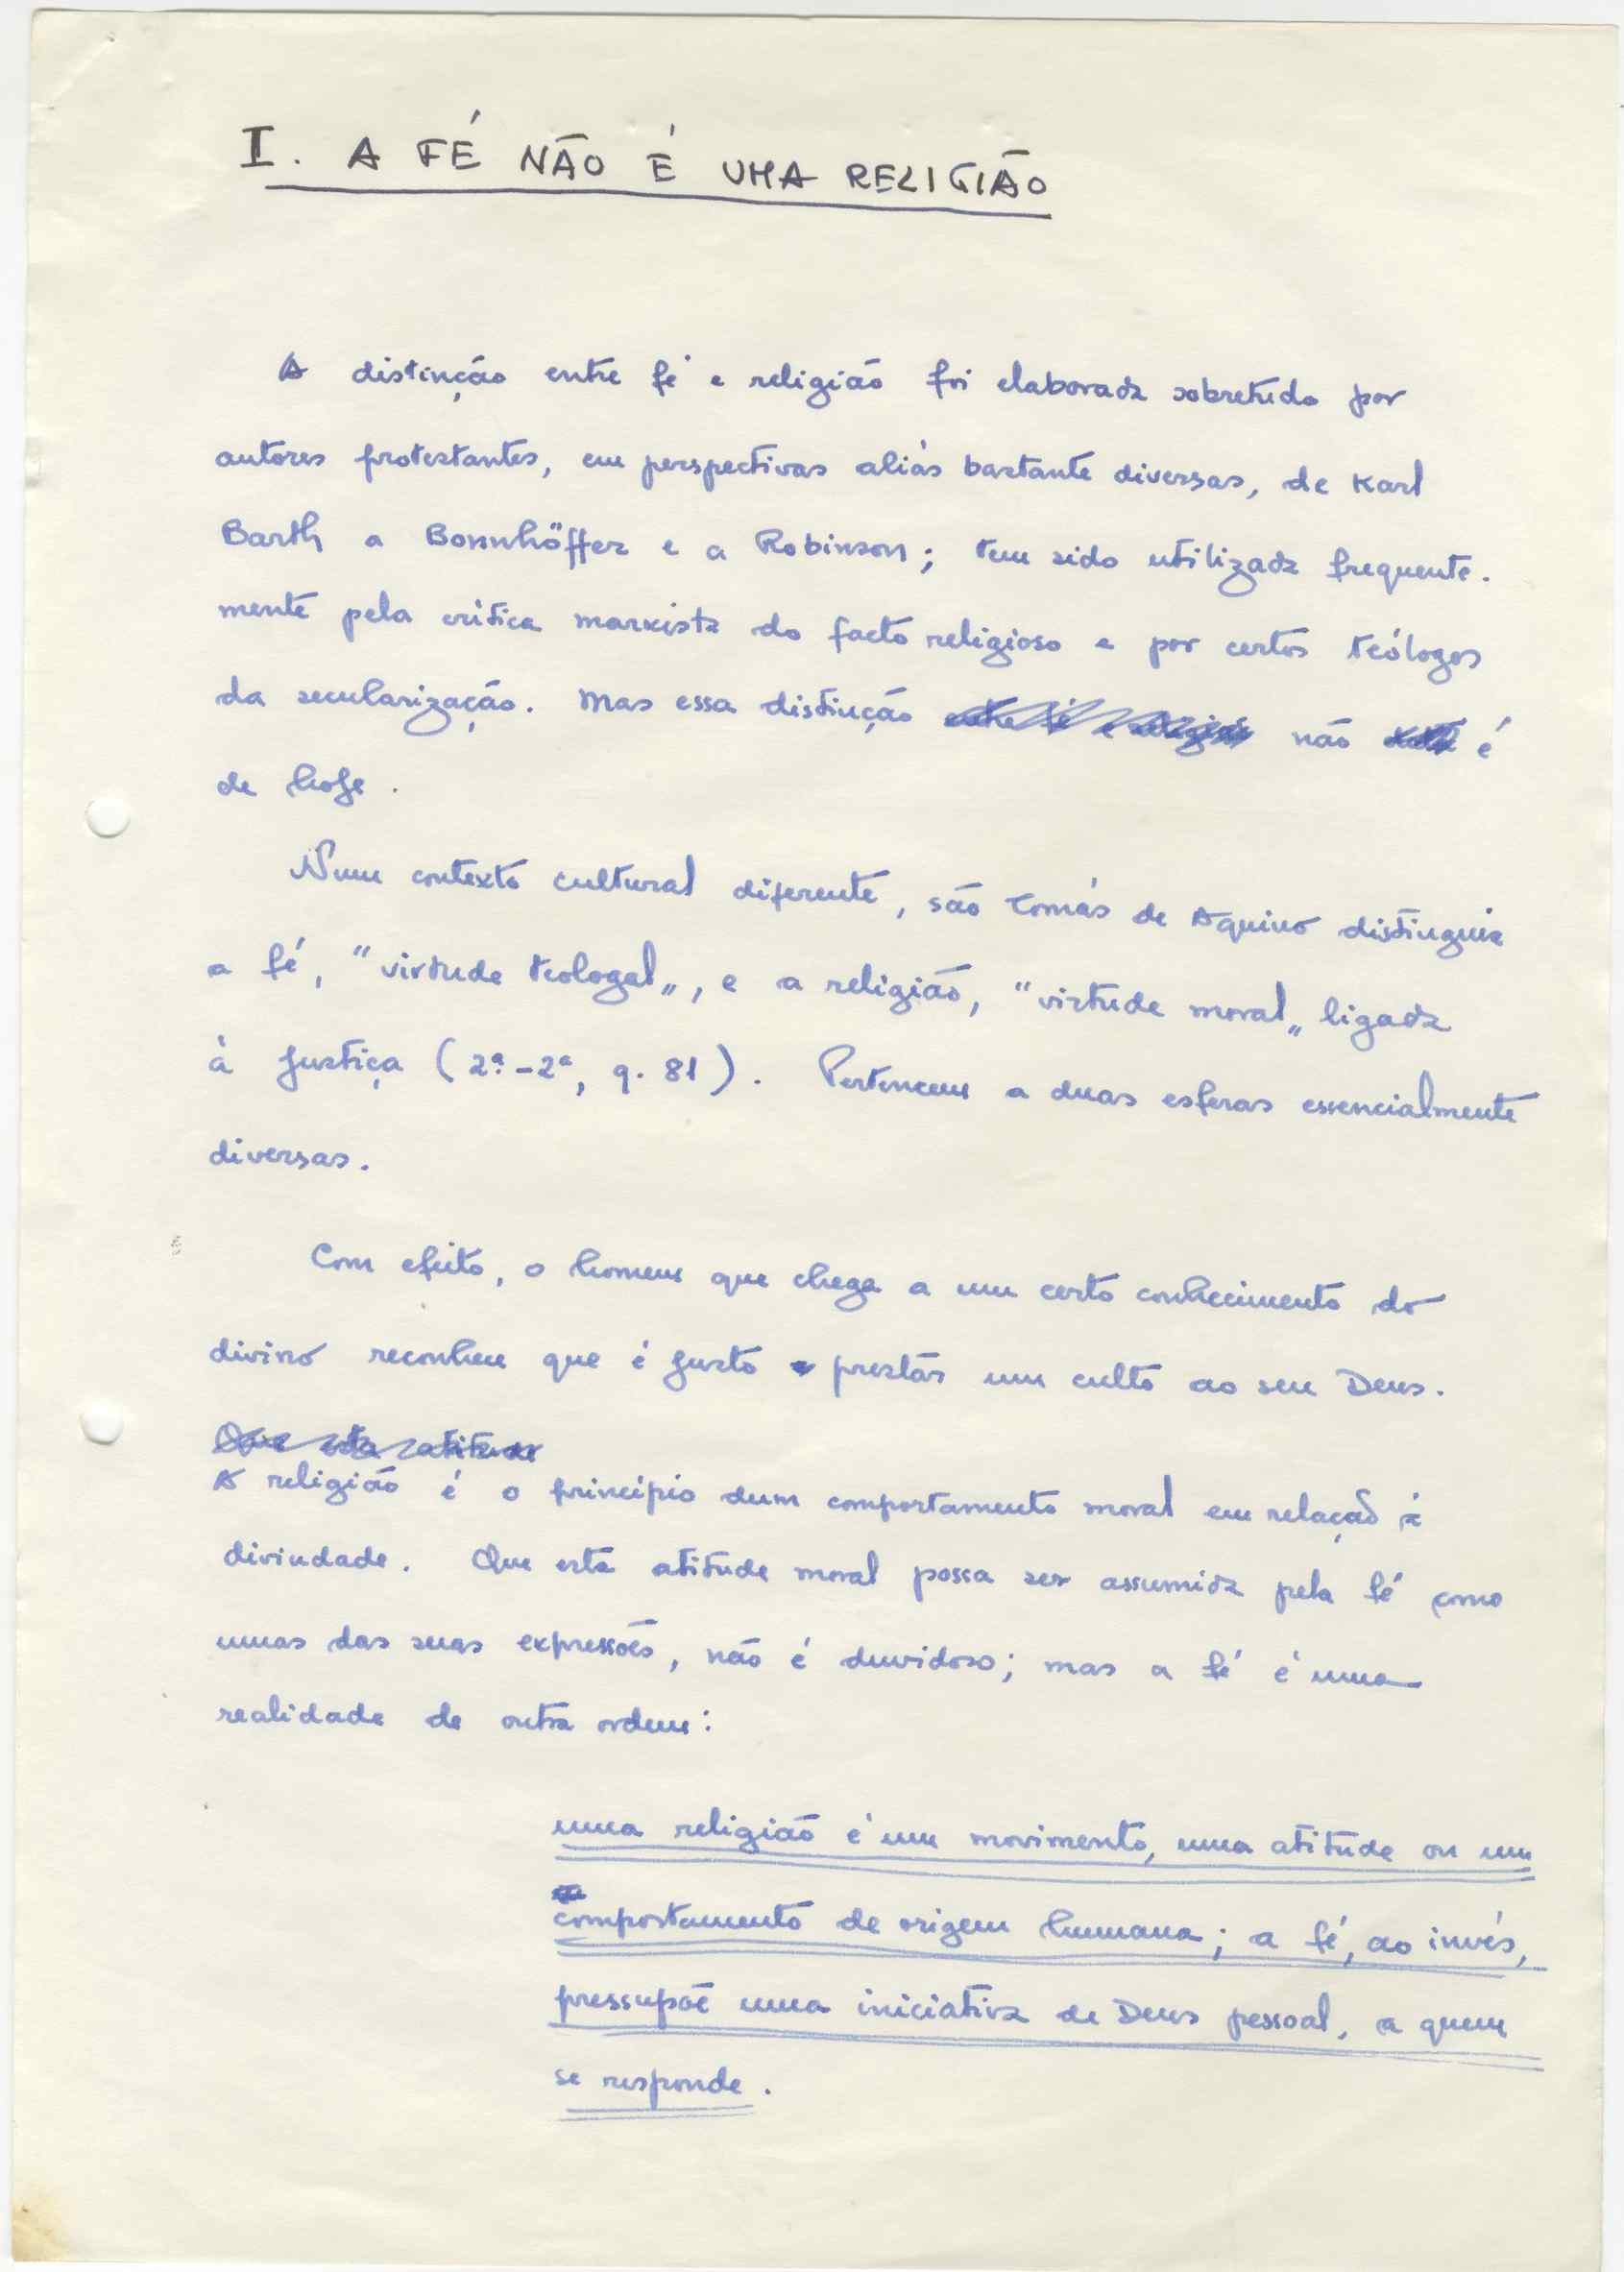 I. A FÉ NÃO É UMA RELIGIÃO
A distinção entre fé e religião foi elaborada sobretudo por
autores protestantes, em perspectivas aliás bastante diversas, de Karl
Barth a Bonnhöffer e a Robinson; tem sido utilizada frequente-
mente pela crítica marxista do facto religioso e por certos teólogos
da secularização. Mas essa distinção entre fé e religião não é
de hoje.
Num contexto cultural diferente, são Tomás de Aquino distinguia
a fé, "virtude teologal„, e a religião, "virtude moral„ ligada
à justiça (2ª-2ª, q. 81). Pertencem a duas esferas essencialmente
diversas.
Com efeito, o homem que chega a um certo conhecimento do
divino reconhece que é justo prestar um culto ao seu Deus.
Que esta atitude
A religião é o princípio dum comportamento moral em relação à
divindade. Que esta atitude moral possa ser assumida pela fé como
umas das suas expressões, não é duvidoso; mas a fé é uma
realidade de outra ordem:
uma religião é um movimento, uma atitude ou um
comportamento de origem humana; a fé, ao invés,
pressupõe uma iniciativa de Deus pessoal, a quem
se responde.